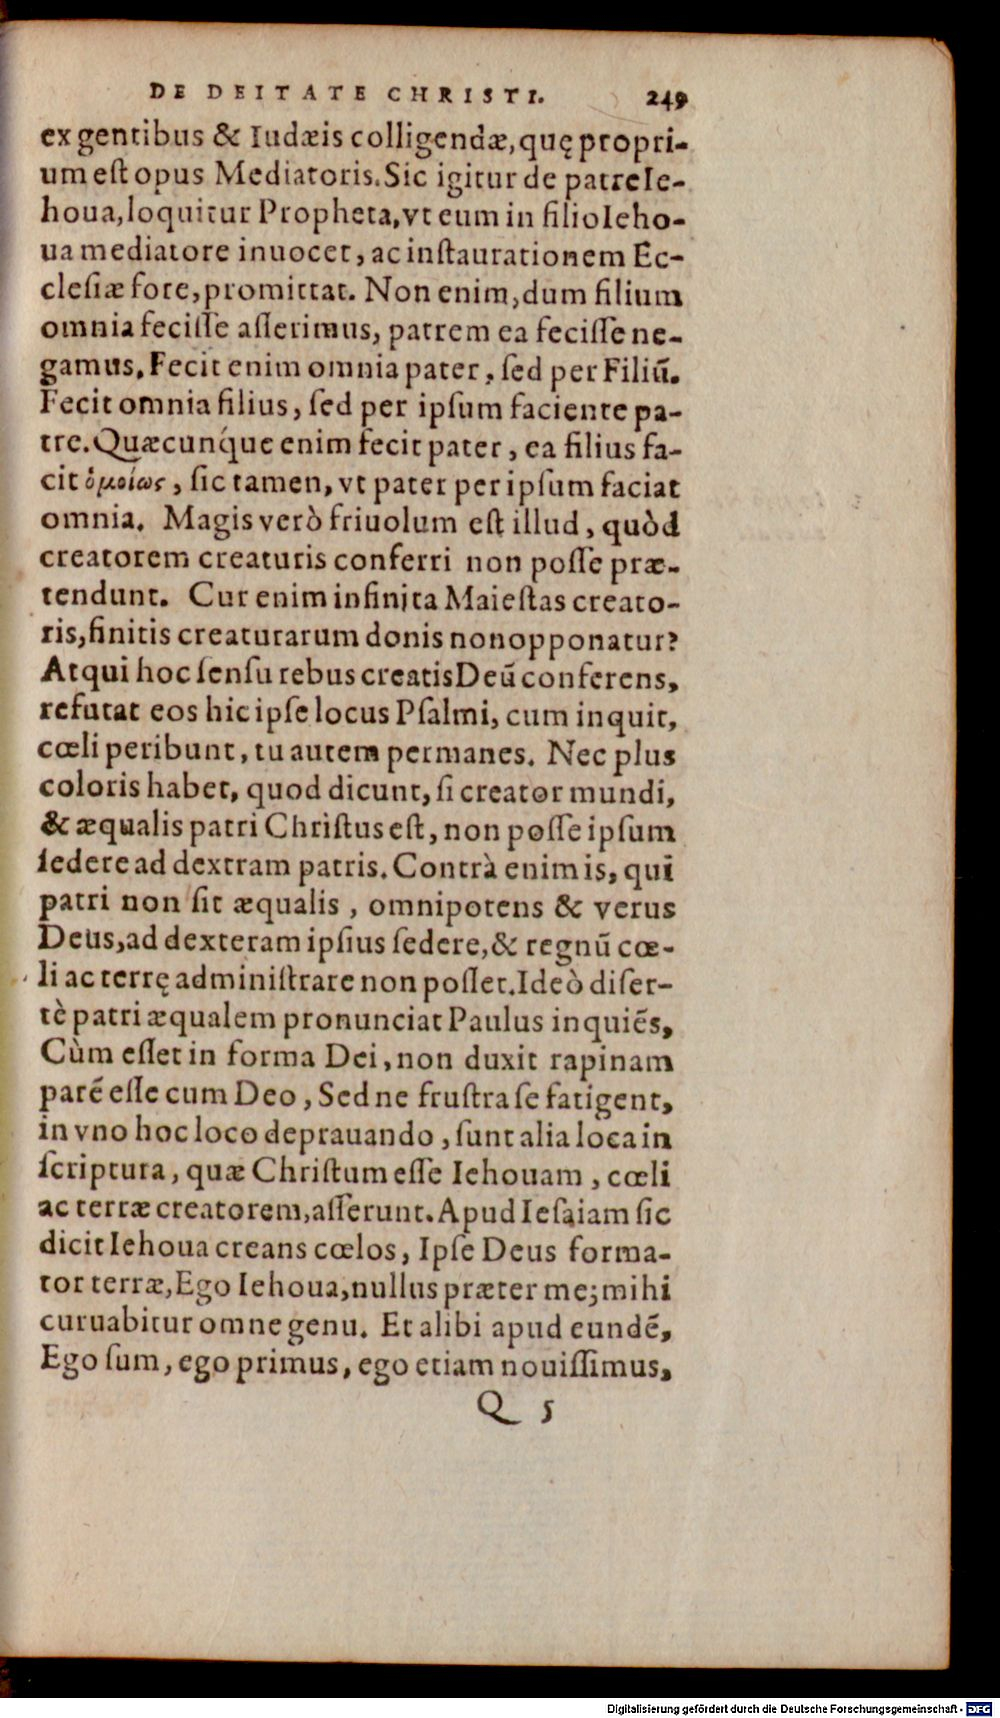 DE DEITATE CHRISTI. 249
ex gentibus & Iudæis colligendæ, quę propri-
um est opus Mediatoris. Sic igitur de patre Ie-
houa, loquitur Propheta, vt eum in filio Ieho-
ua mediatore inuocet, ac instaurationem Ec-
clesiæ fore, promittat. Non enim, dum filium
omnia fecisse asserimus, patrem ea fecisse ne-
gamus. Fecit enim omnia pater, sed per Filiũ.
Fecit omnia filius, sed per ipsum faciente pa-
tre. Quæcunq́ue enim fecit pater, ea filius fa-
cit ὁμοίως, sic tamen, vt pater per ipsum faciat
omnia. Magis verò friuolum est illud, quòd
creatorem creaturis conferri non posse præ-
tendunt. Cur enim infinita Maiestas creato-
ris, finitis creaturarum donis non opponatur?
Atqui hoc sensu rebus creatis Deũ conferens,
refutat eos hic ipse locus Psalmi, cum inquit,
cœli peribunt, tu autem permanes. Nec plus
coloris habet, quod dicunt, si creator mundi,
& æqualis patri Christus est, non posse ipsum
sedere ad dextram patris. Contrà enim is, qui
patri non sit æqualis, omnipotens & verus
Deus, ad dexteram ipsius sedere, & regnũ cœ-
li ac terrę administrare non posset. Ideò diser-
tè patri æqualem pronunciat Paulus inquiẽs,
Cùm esset in forma Dei, non duxit rapinam
parẽ esse cum Deo, Sed ne frustra se fatigent,
in vno hoc loco deprauando, sunt alia loca in
scriptura, quæ Christum esse Iehouam, cœli
ac terræ creatorem, asserunt. Apud Iesaiam sic
dicit Iehoua creans cœlos, Ipse Deus forma-
tor terræ, Ego Iehoua, nullus præter me; mihi
curuabitur omne genu. Et alibi apud eundẽ,
Ego sum, ego primus, ego etiam nouissimus,
Q 5
Digitalisierung gefördert durch die Deutsche Forschungsgemeinschaft - DFG